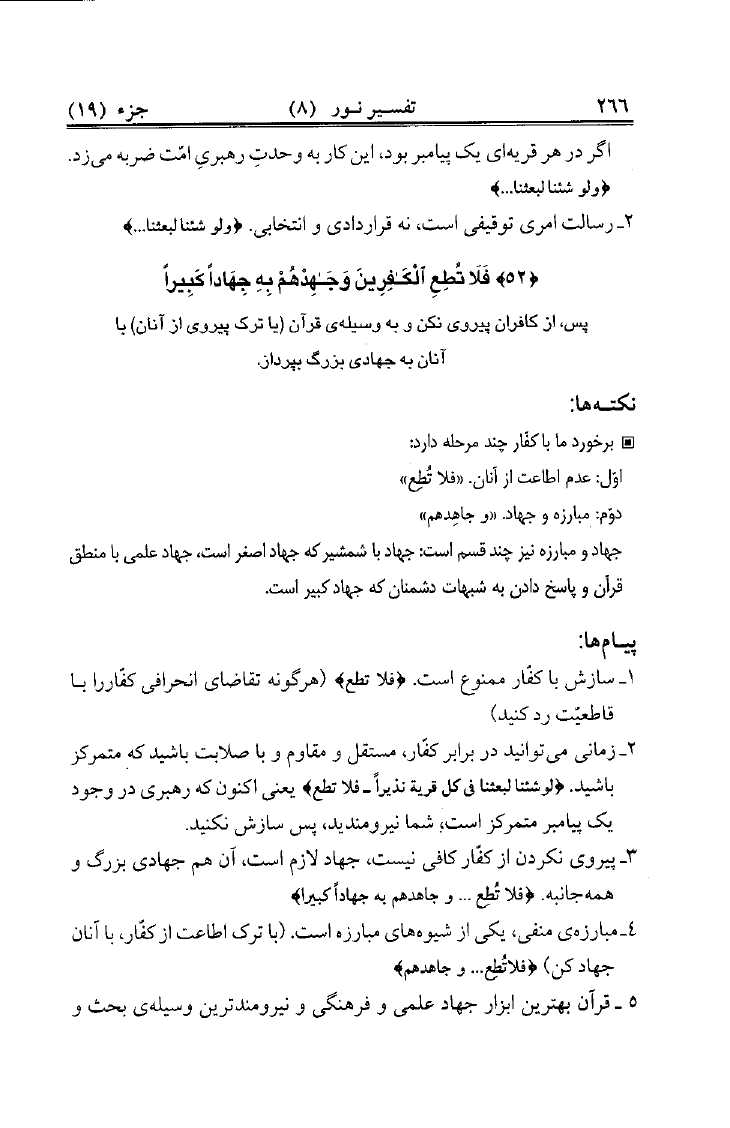 ٢٦٦ تفسیر نور (٨) جزء (١٩)
اگر در هر قریه‌ای یک پیامبر بود، این کار به وحدتِ رهبریِ امّت ضربه می‌زد.
﴿ولو شئنا لبعثنا...﴾
٢ـ رسالت امری توقیفی است، نه قراردادی و انتخابی. ﴿ولو شئنا لبعثنا...﴾
﴿٥٢﴾ فَلَا تُطِعِ ٱلْكَـٰفِرِينَ وَجَـٰهِدْهُمْ بِهِ جِهَاداً كَبِيراً
پس، از کافران پیروی نکن و به وسیله‌ی قرآن (یا ترک پیروی از آنان) با
آنان به جهادی بزرگ بپرداز.
نکته‌ها:
▣ برخورد ما با کفّار چند مرحله دارد:
اوّل: عدم اطاعت از آنان. «فلا تُطِع»
دوّم: مبارزه و جهاد. «و جاهِدهم»
جهاد و مبارزه نیز چند قسم است: جهاد با شمشیر که جهاد اصغر است، جهاد علمی با منطق
قرآن و پاسخ دادن به شبهات دشمنان که جهاد کبیر است.
پیام‌ها:
١ـ سازش با کفّار ممنوع است. ﴿فلا تطع﴾ (هرگونه تقاضای انحرافی کفّاررا با
قاطعیّت رد کنید)
٢ـ زمانی می‌توانید در برابر کفّار، مستقل و مقاوم و با صلابت باشید که متمرکز
باشید. ﴿لوشئنا لبعثنا فی کل قریة نذیراً ـ فلا تطع﴾ یعنی اکنون که رهبری در وجود
یک پیامبر متمرکز است، شما نیرومندید، پس سازش نکنید.
٣ـ پیروی نکردن از کفّار کافی نیست، جهاد لازم است، آن هم جهادی بزرگ و
همه‌جانبه. ﴿فلا تُطِع ... و جاهدهم به جهاداً کبیرا﴾
٤ـ مبارزه‌ی منفی، یکی از شیوه‌های مبارزه است. (با ترک اطاعت از کفّار، با آنان
جهاد کن) ﴿فلاتُطِع... و جاهدهم﴾
٥ ـ قرآن بهترین ابزار جهاد علمی و فرهنگی و نیرومندترین وسیله‌ی بحث و